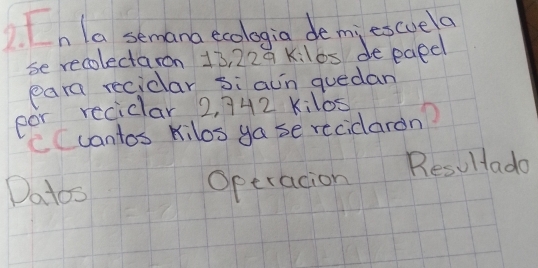 2. En la semana ecologia de mi escuela
se recolectaron 13,229 Kilos de papel
para reciclar si aún quedan
por reciclar 2,742 Kilos
¿Cuantos Kilos ya se reciclaron?
Datos Operacion Resultado